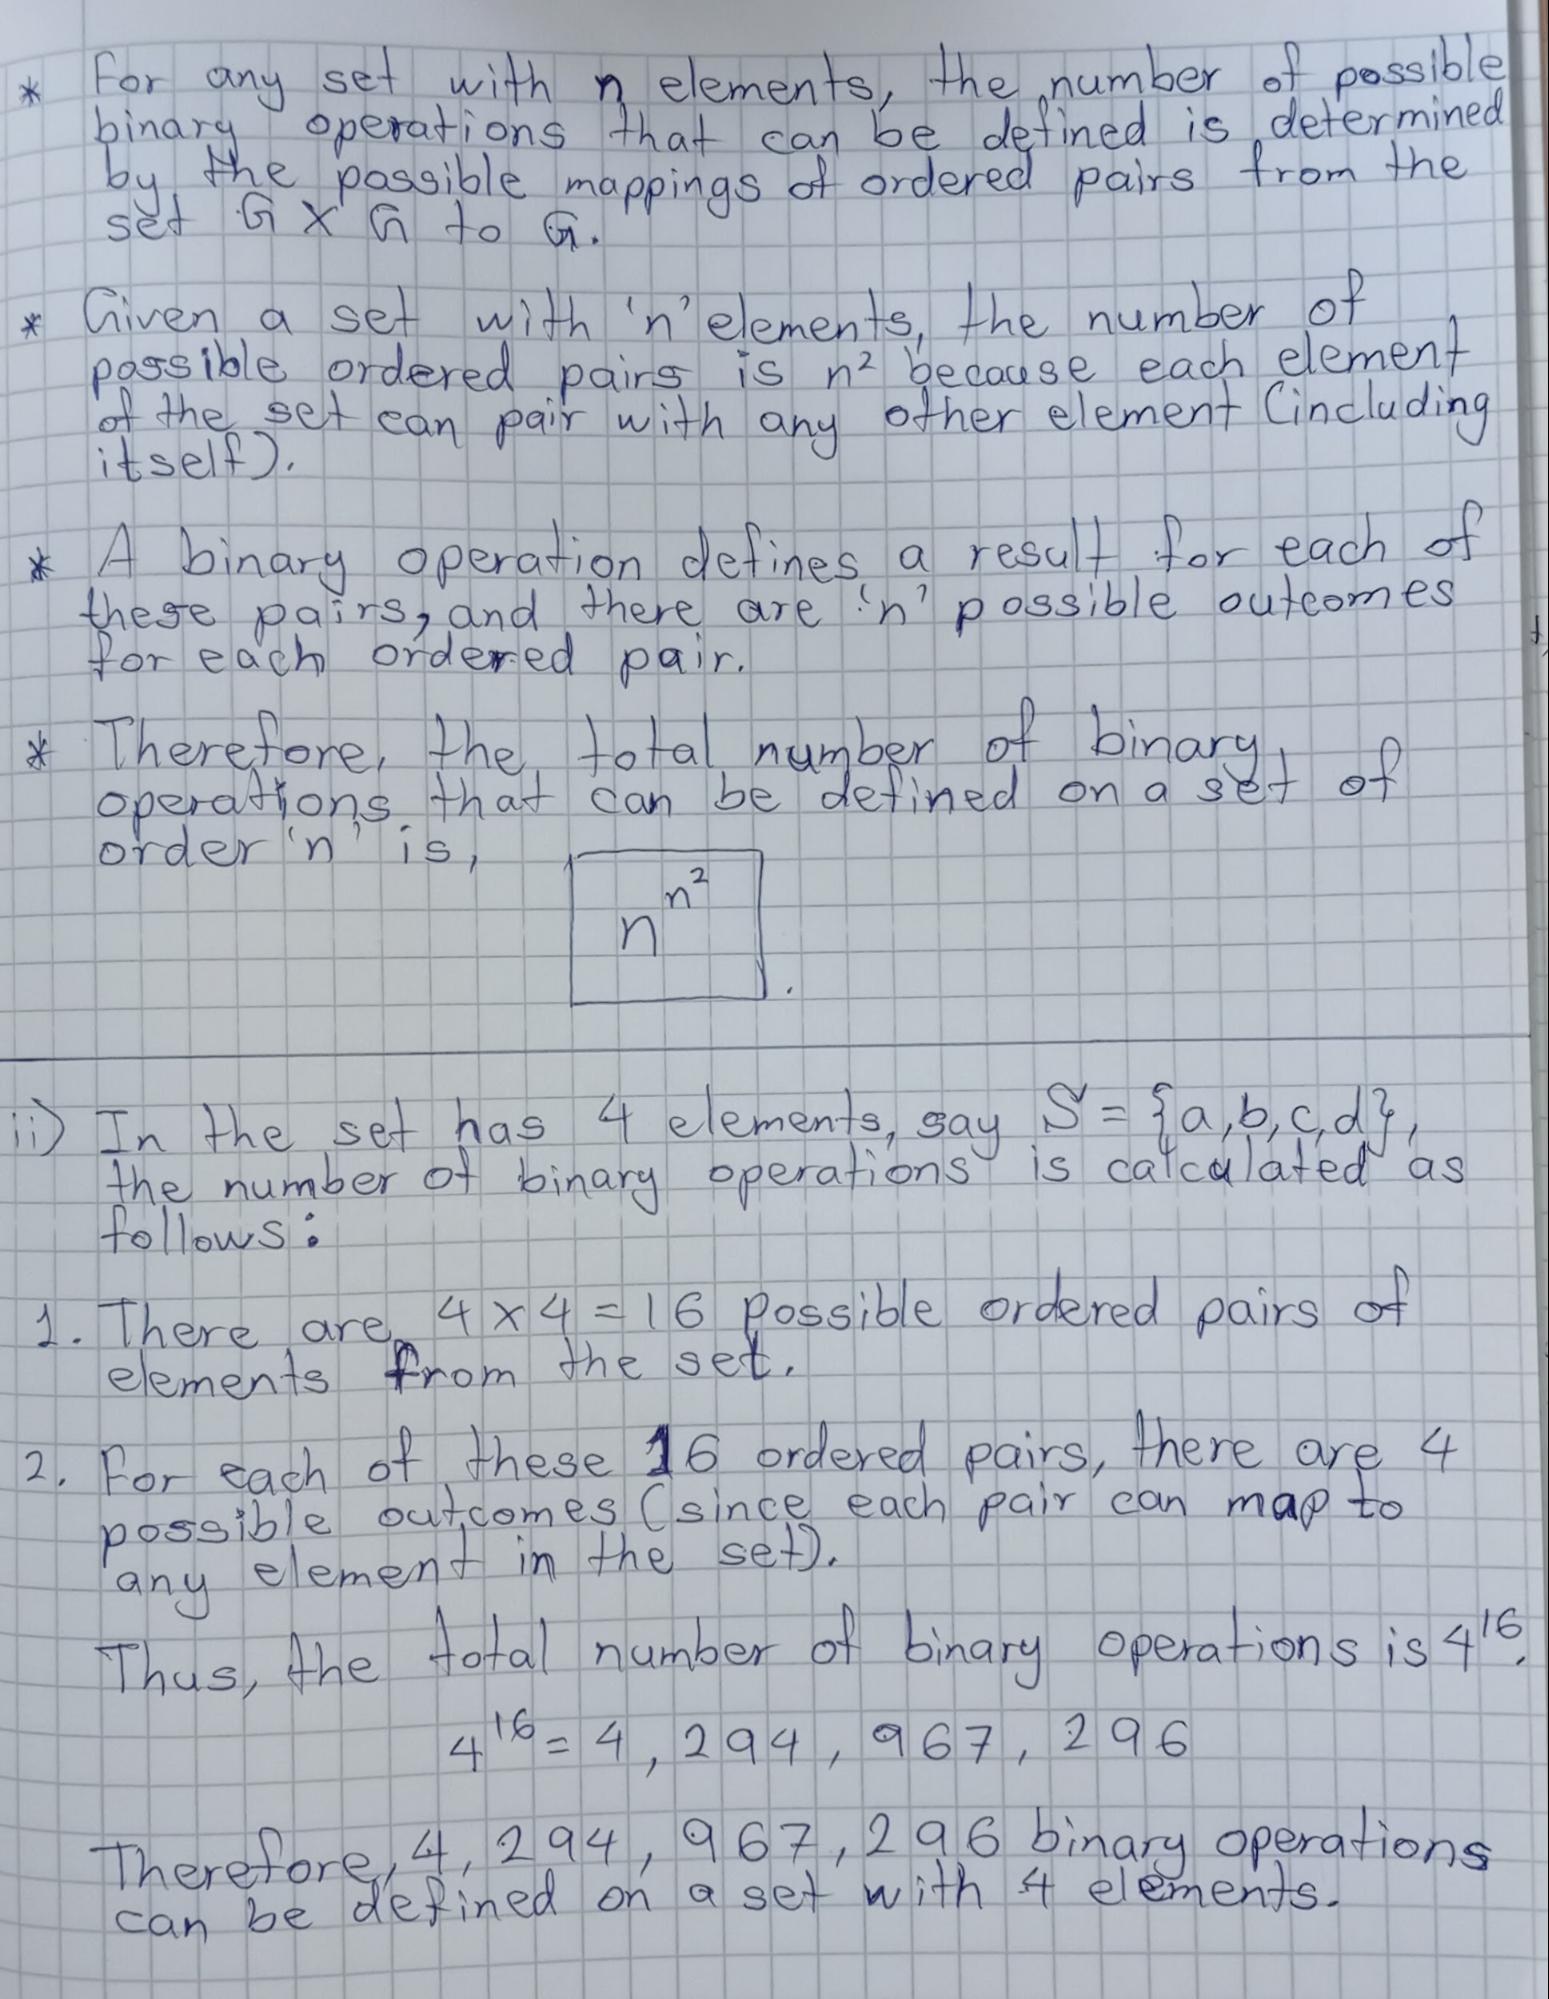 * For any set with n elements, the number of possible
binary operations that can be defined is determined
by the possible mappings of ordered pairs from the
set G × G to G.
* Given a set with 'n' elements, the number of
possible ordered pairs is n² because each element
of the set can pair with any other element (including
itself).
* A binary operation defines a result for each of
these pairs, and there are 'n' possible outcomes
for each ordered pair.
* Therefore, the total number of binary
operations that can be defined on a set of
order 'n' is,
n^n²
.
ii) In the set has 4 elements, say S = {a,b,c,d},
the number of binary operations is calculated as
follows:
1. There are 4 × 4 = 16 possible ordered pairs of
elements from the set.
2. For each of these 16 ordered pairs, there are 4
possible outcomes (since each pair can map to
any element in the set).
Thus, the total number of binary operations is 4¹⁶.
4¹⁶ = 4, 294, 967, 296
Therefore, 4, 294, 967, 296 binary operations
can be defined on a set with 4 elements.